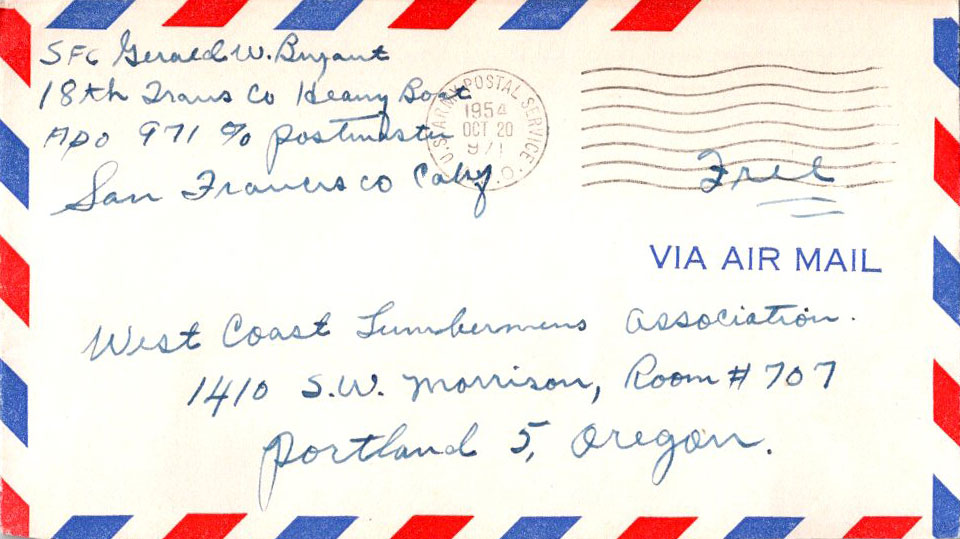 SFC Gerald W. Bryant
18th Trans Co Heavy Boat
APO 971 % postmaster
San Francisco Calif
U.S. ARMY POSTAL SERVICE
1954
OCT 20
971
Free
VIA AIR MAIL
West Coast Lumbermens Association.
1410 S.W. Morrison, Room # 707
Portland 5, Oregon.